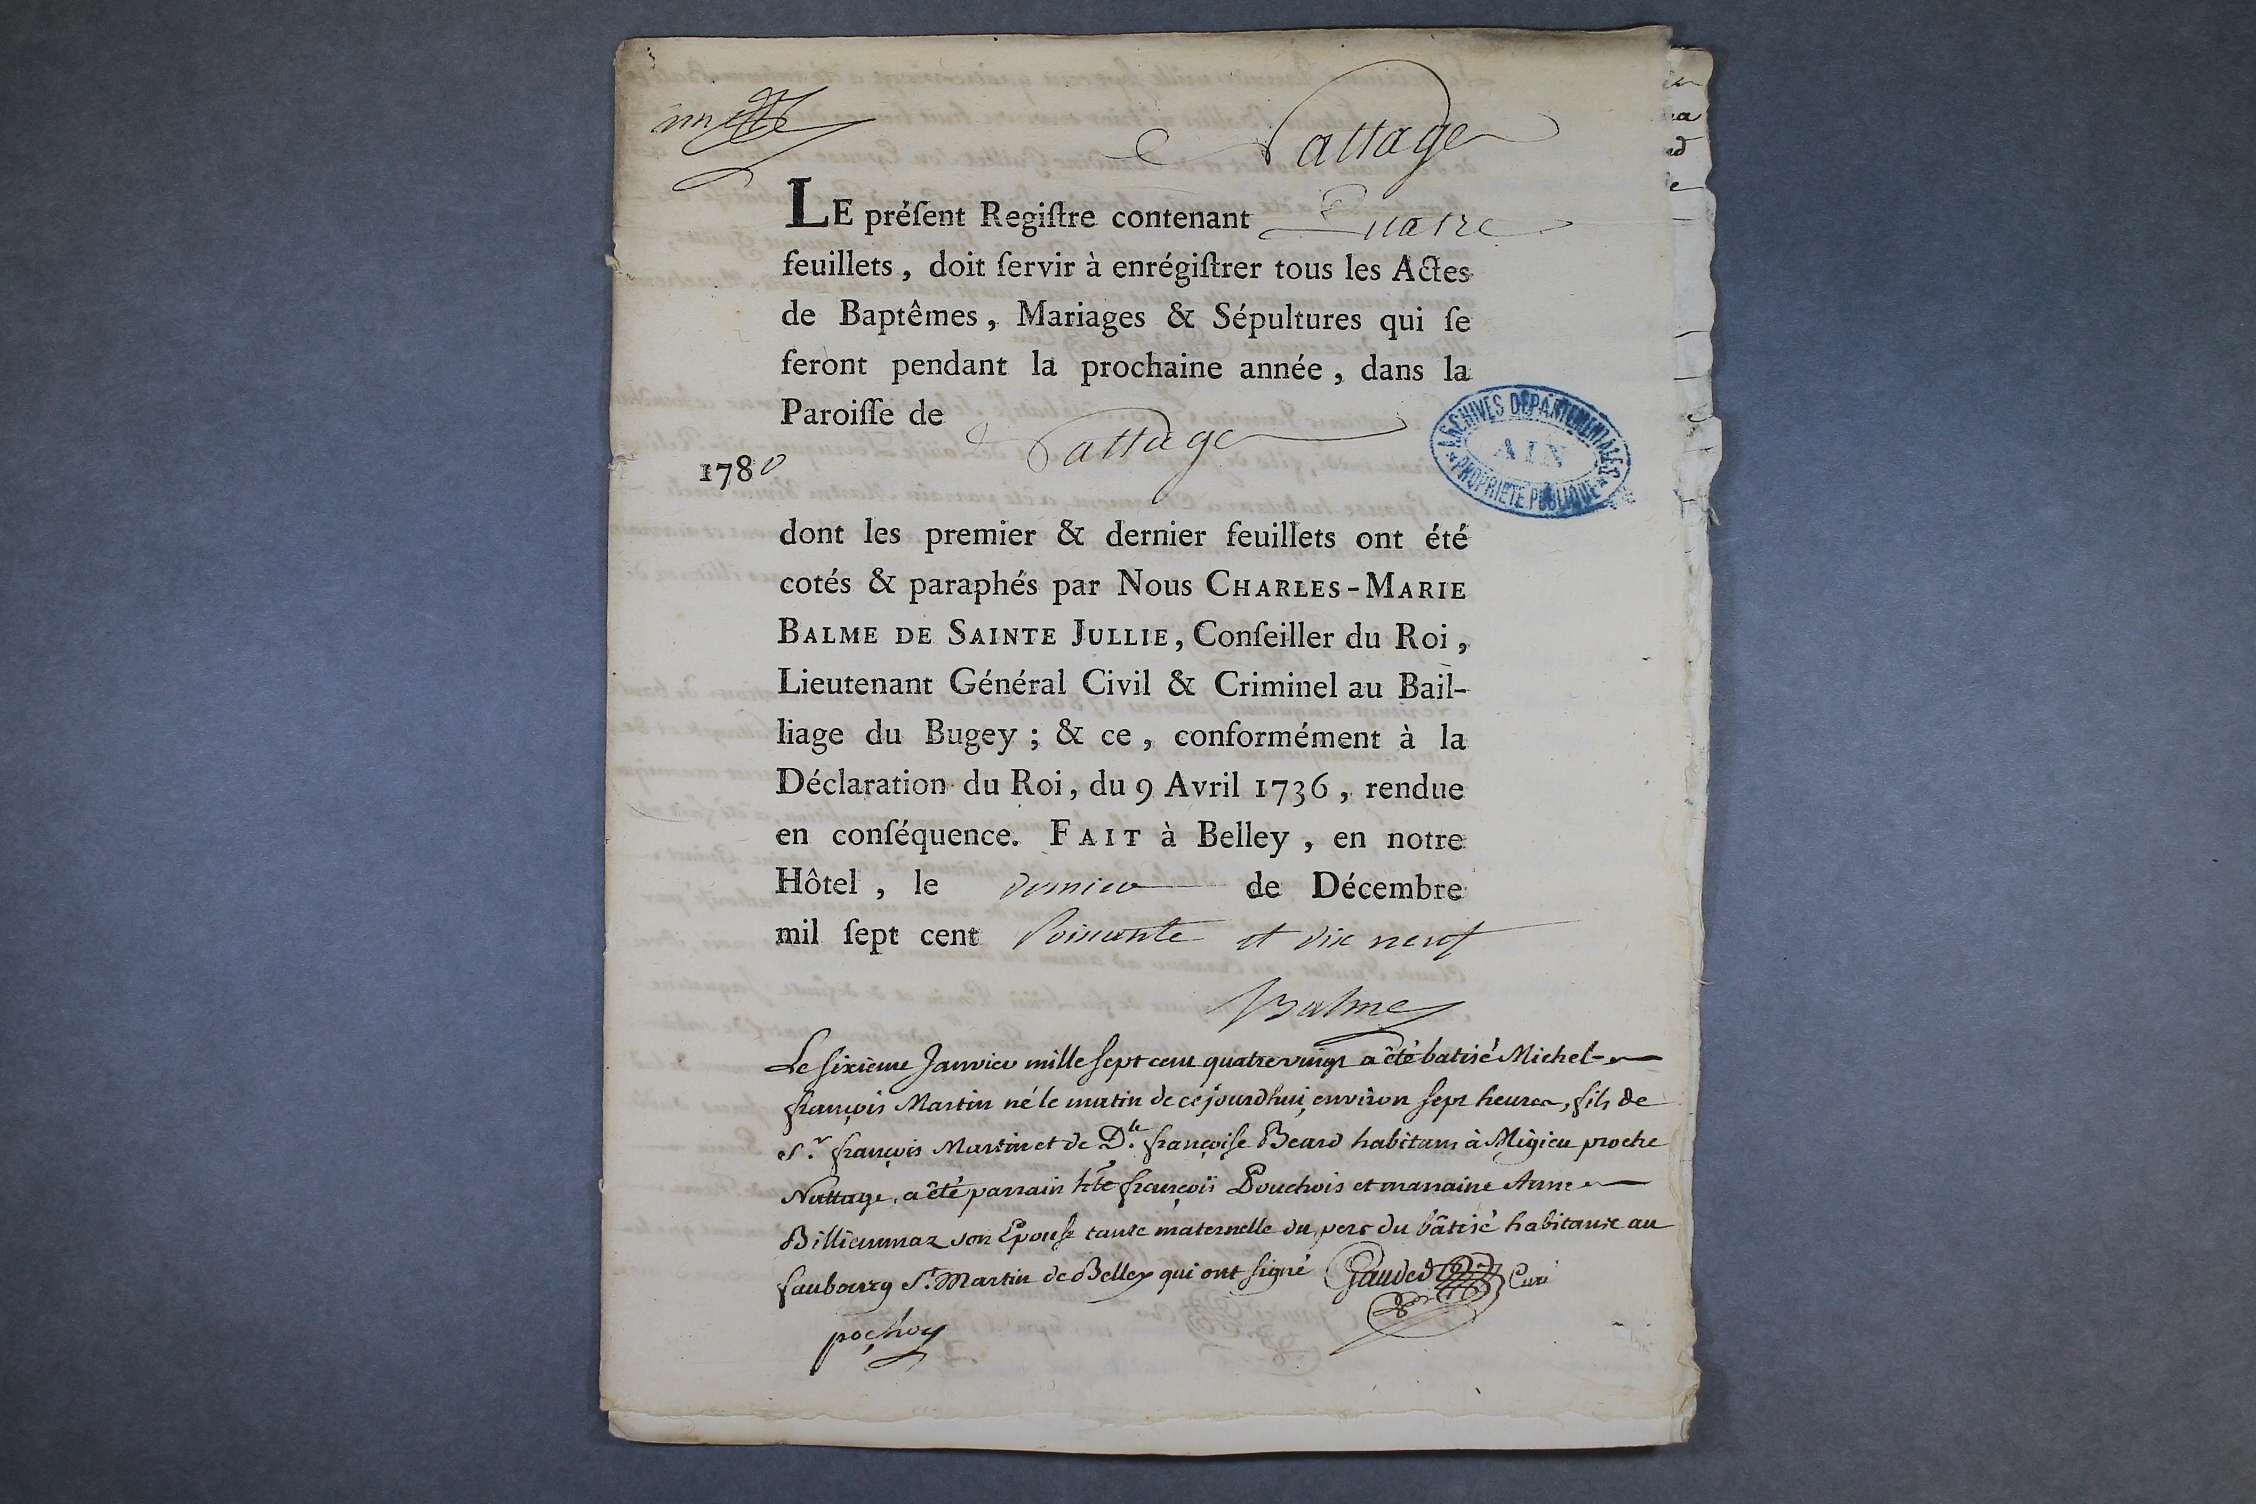 un
Nattage
LE préſent Regiſtre contenant Quatre
feuillets, doit ſervir à enrégiſtrer tous les Actes
de Baptêmes, Mariages & Sépultures qui ſe
feront pendant la prochaine année, dans la
Paroiſſe de Nattage
1780
dont les premier & dernier feuillets ont été
cotés & paraphés par Nous CHARLES-MARIE
BALME DE SAINTE JULLIE, Conſeiller du Roi,
Lieutenant Général Civil & Criminel au Bail-
liage du Bugey; & ce, conformément à la
Déclaration du Roi, du 9 Avril 1736, rendue
en conſéquence. FAIT à Belley, en notre
Hôtel, le dernier de Décembre
mil ſept cent soixante et dix neuf
Balme
ARCHIVES DÉPARTEMENTALES
AIN
PROPRIÉTÉ PUBLIQUE
Le sixieme Janvier mille sept cent quatre vingt a été batisé Michel-
françois Martin né le matin de cejourdhui environ sept heures, fils de
Sr. françois Martin et de Dlle. françoise Beard habitans à Migieu proche
Nattage, a été parrain hte françois Pouchois et marraine Anne
Billiemmaz son Epouse tante maternelle du pere du bâtisé habitants au
faubourg St. Martin de Belley qui ont signé Gauded Curé
pochoy